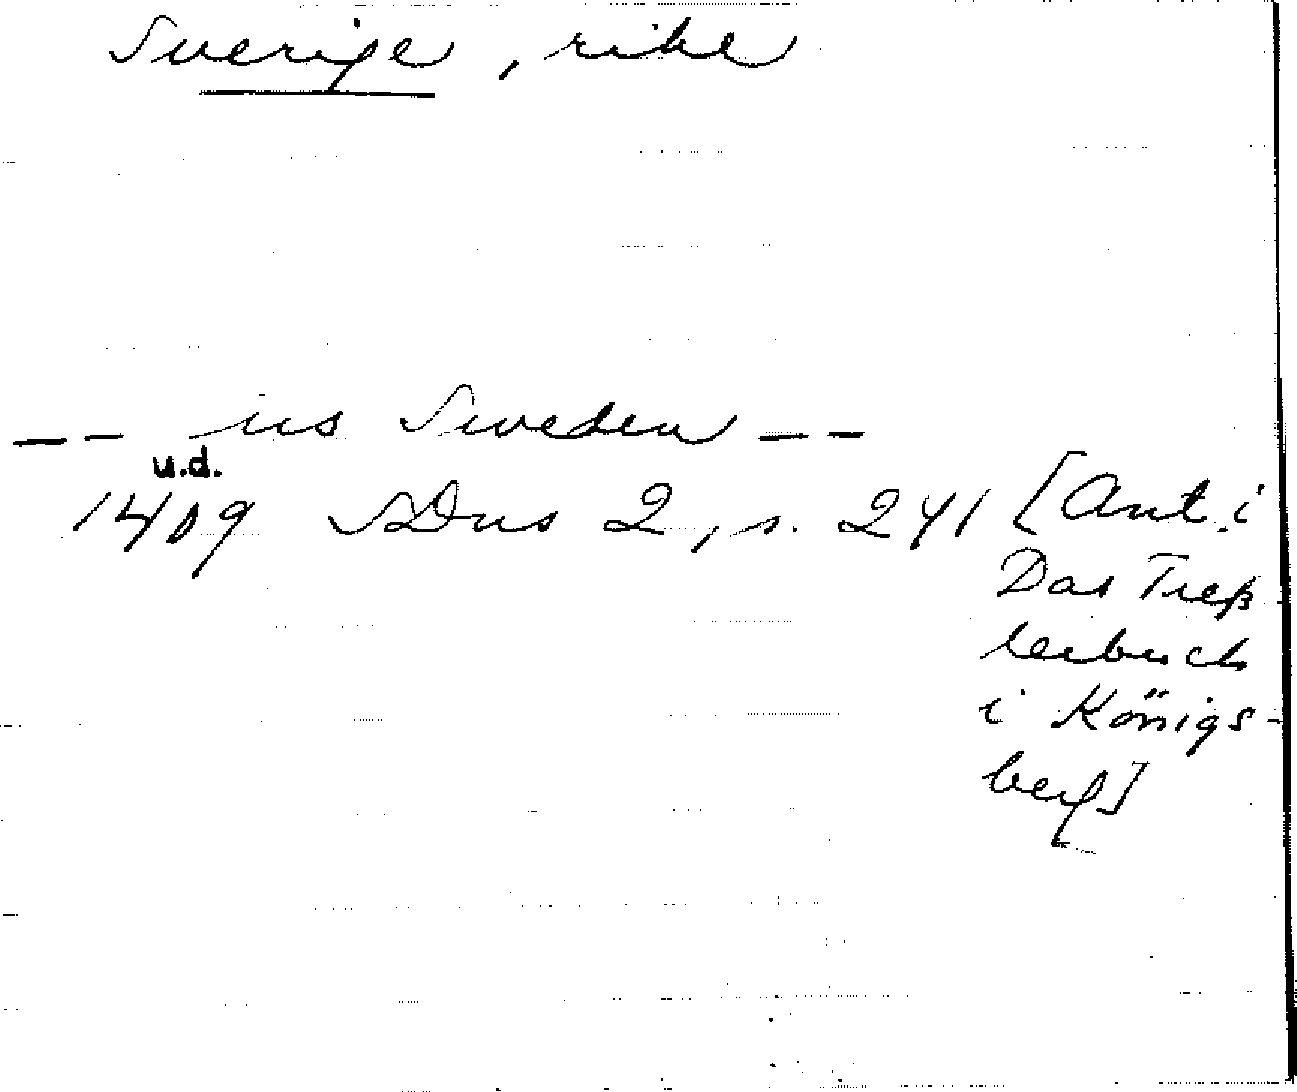 Sverige, rike
-- us Sweden --
u.d.
1409 SDns 2, s. 241 [Ant. i
Das Treß
lerbuch
i Königs-
berg]